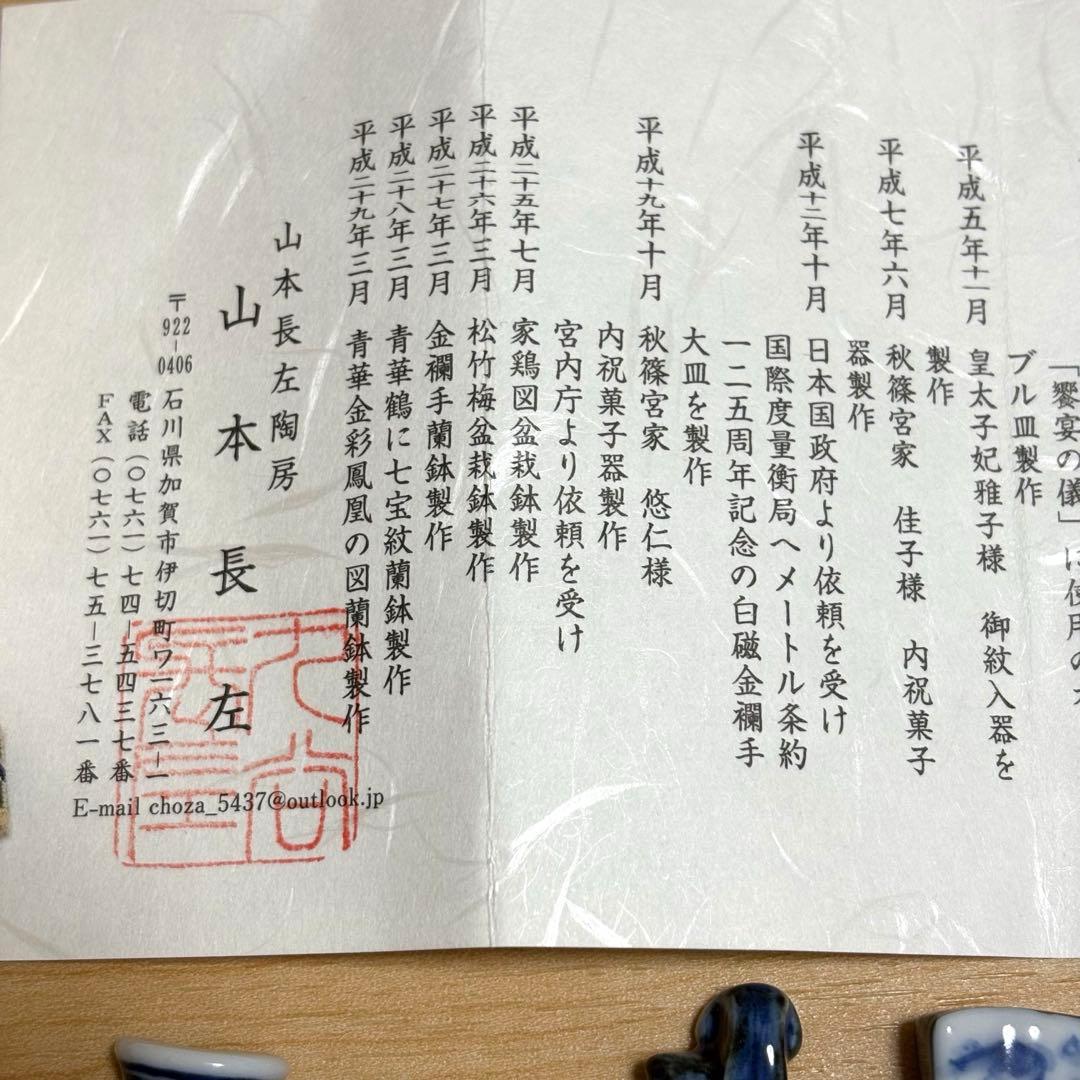 「饗宴の儀」に使用の
ブル皿製作
平成五年十一月 皇太子妃雅子様 御紋入器を
製作
平成七年六月 秋篠宮家 佳子様 内祝菓子
器製作
平成十二年十月 日本国政府より依頼を受け
国際度量衡局へメートル条約
一二五周年記念の白磁金襴手
大皿を製作
平成十九年十月 秋篠宮家 悠仁様
内祝菓子器製作
宮内庁より依頼を受け
平成二十五年七月 家鶏図盆栽鉢製作
平成二十六年三月 松竹梅盆栽鉢製作
平成二十七年三月 金襴手蘭鉢製作
平成二十八年三月 青華鶴に七宝紋蘭鉢製作
平成二十九年三月 青華金彩鳳凰の図蘭鉢製作
山本長左陶房
山本長左
〒922-0406 石川県加賀市伊切町ワ一六三-一
電話(〇七六一)七四-五四三七番
FAX(〇七六一)七五-三七八一番
E-mail choza_5437@outlook.jp